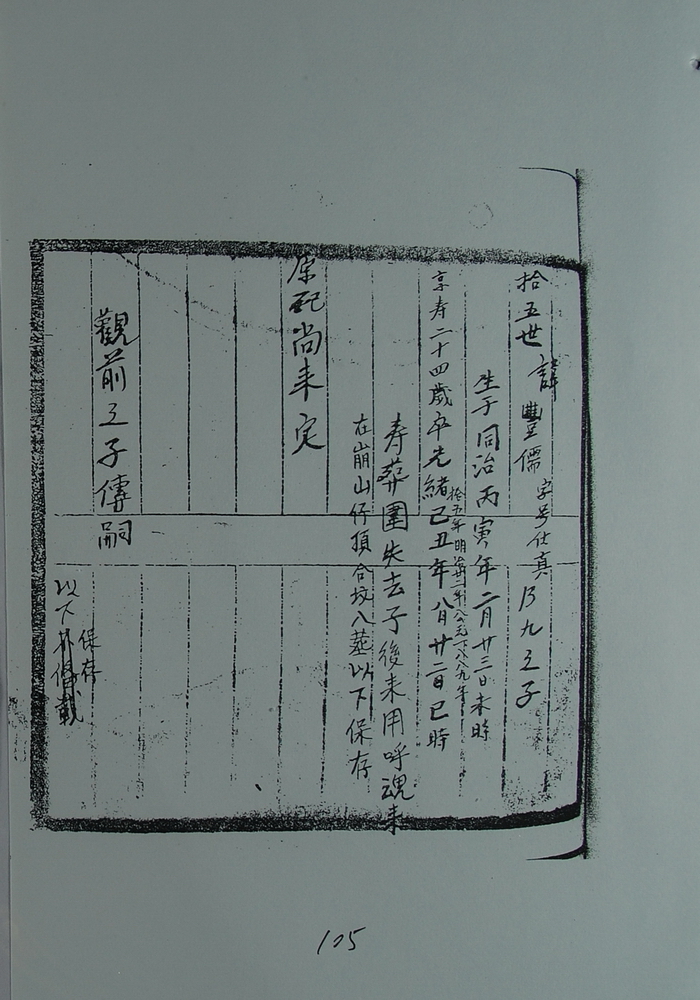 拾五世 諱豐儒 字号仕真 乃九之子
生于同治丙寅年二月廿三日未時
享寿二十四歲卒光緒己丑年八月廿二日巳時
拾五年 明治廿二年 公元一八八九年
寿葬圍失去子後来用呼魂来
在崩山仔頂合坟八莖以下保存
原配尚未定
觀前之子傳嗣
保存
以下
載
105